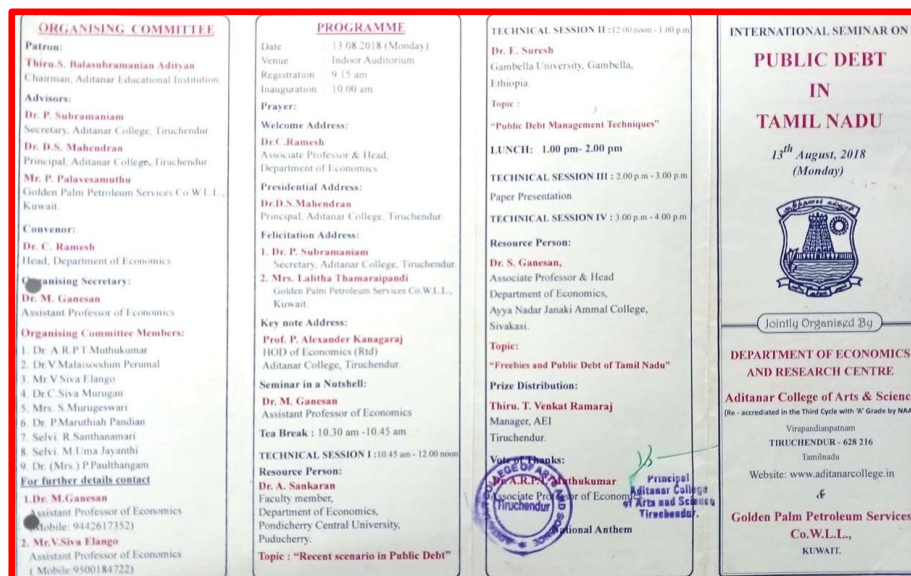 ORGANISING COMMITTEE
Patron:
Thiru.S. Balasubramanian Adityan
Chairman, Aditanar Educational Institution
Advisors:
Dr. P. Subramaniam
Secretary, Aditanar College, Tiruchendur
Dr. D.S. Mahendran
Principal, Aditanar College, Tiruchendur.
Mr. P. Palavesamuthu
Golden Palm Petroleum Services Co W.L.L.,
Kuwait.
Convenor:
Dr. C. Ramesh
Head, Department of Economics
Organising Secretary:
Dr. M. Ganesan
Assistant Professor of Economics
Organising Committee Members:
1. Dr. A.R.P.T Muthukumar
2. Dr V.Malaisoodum Perumal
3. Mr V.Siva Elango
4. Dr.C.Siva Murugan
5. Mrs. S.Murugeswari
6. Dr. P.Maruthiah Pandian
7. Selvi. R.Santhanamari
8. Selvi. M.Uma Jayanthi
9. Dr. (Mrs.) P.Paulthangam
For further details contact
1.Dr. M.Ganesan
Assistant Professor of Economics
(Mobile: 9442617352)
2. Mr.V.Siva Elango
Assistant Professor of Economics
( Mobile 9500184722)
PROGRAMME
Date : 13.08.2018 (Monday)
Venue : Indoor Auditorium
Registration : 9.15 am
Inauguration : 10.00 am
Prayer:
Welcome Address:
Dr.C.Ramesh
Associate Professor & Head,
Department of Economics
Presidential Address:
Dr.D.S.Mahendran
Principal, Aditanar College, Tiruchendur.
Felicitation Address:
1. Dr. P. Subramaniam
Secretary, Aditanar College, Tiruchendur.
2. Mrs. Lalitha Thamaraipandi
Golden Palm Petroleum Services Co.W.L.L.,
Kuwait.
Key note Address:
Prof. P. Alexander Kanagaraj
HOD of Economics (Rtd)
Aditanar College, Tiruchendur.
Seminar in a Nutshell:
Dr. M. Ganesan
Assistant Professor of Economics
Tea Break : 10.30 am -10.45 am
TECHNICAL SESSION I :10.45 am - 12.00 noon
Resource Person:
Dr. A. Sankaran
Faculty member,
Department of Economics,
Pondicherry Central University,
Puducherry.
Topic : "Recent scenario in Public Debt"
TECHNICAL SESSION II :12.00 noon - 1.00 p.m
Dr. E. Suresh
Gambella University, Gambella,
Ethiopia.
Topic :
"Public Debt Management Techniques"
LUNCH: 1.00 pm- 2.00 pm
TECHNICAL SESSION III : 2.00 p.m - 3.00 p.m
Paper Presentation
TECHNICAL SESSION IV : 3.00 p.m - 4.00 p.m
Resource Person:
Dr. S. Ganesan,
Associate Professor & Head
Department of Economics,
Ayya Nadar Janaki Ammal College,
Sivakasi.
Topic:
"Freebies and Public Debt of Tamil Nadu"
Prize Distribution:
Thiru. T. Venkat Ramaraj
Manager, AEI
Tiruchendur.
Vote of Thanks:
Dr.A.R.P.T. Muthukumar
Associate Professor of Economics
National Anthem
COLLEGE OF ARTS AND SCIENCE
Tiruchendur
Principal
Aditanar College
of Arts and Science
Tiruchendur.
INTERNATIONAL SEMINAR ON
PUBLIC DEBT
IN
TAMIL NADU
13th August, 2018
(Monday)
Jointly Organised By
DEPARTMENT OF ECONOMICS
AND RESEARCH CENTRE
Aditanar College of Arts & Scienc
(Re - accredited in the Third Cycle with 'A' Grade by NAA
Virapandianpatnam
TIRUCHENDUR - 628 216
Tamilnadu
Website: www.aditanarcollege.in
&
Golden Palm Petroleum Services
Co.W.L.L.,
KUWAIT.